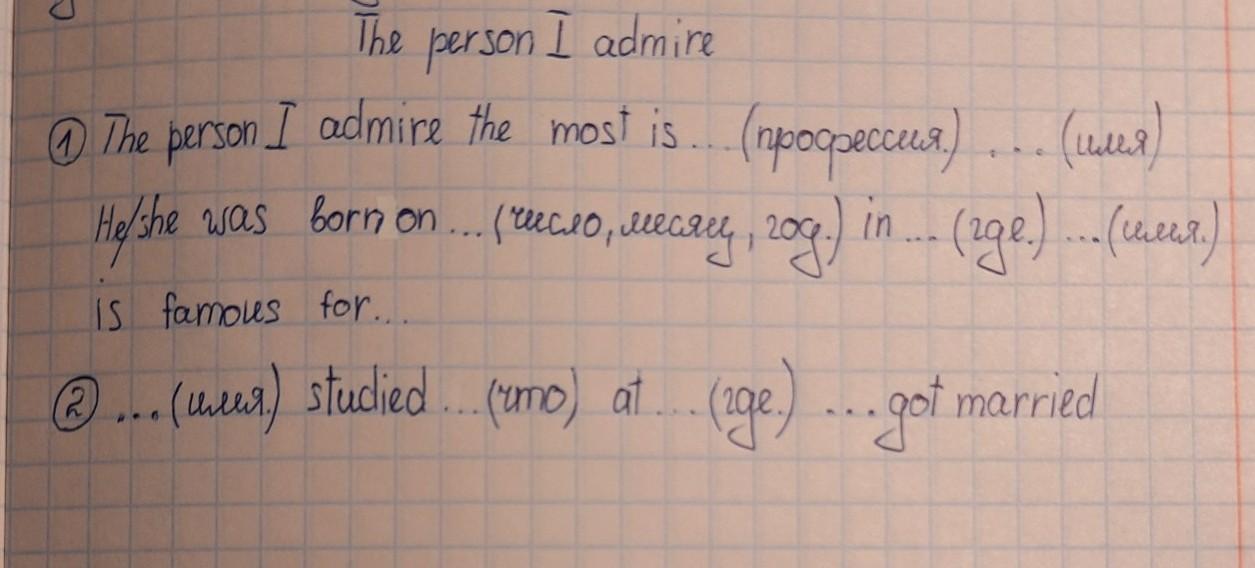 The person I admire
① The person I admire the most is... (профессия.) ... (имя)
He/she was born on... (число, месяц, год.) in... (где.) ...(имя.)
is famous for...
② ...(имя.) studied...(что) at...(где.) ...got married